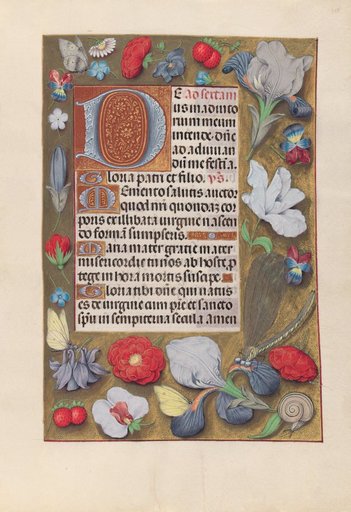 E ad sextam
us in adiuto
rium meum
intende. dñe
ad adiuuan
dũ me festia.
Gloria patri et filio. ps.
Memento salutis auctor
quod nr̃i quondã cor
poris ex illibata uirgine nascen
do formã sumpseris.
Maria mater gratie mater
misericordie tu nos ab hoste p
tege in hora mortis suscipe.
Gloria tibi dñe qui natus
es de uirgine cum pr̃e et sancto
sp̃u in sempiterna secula amen